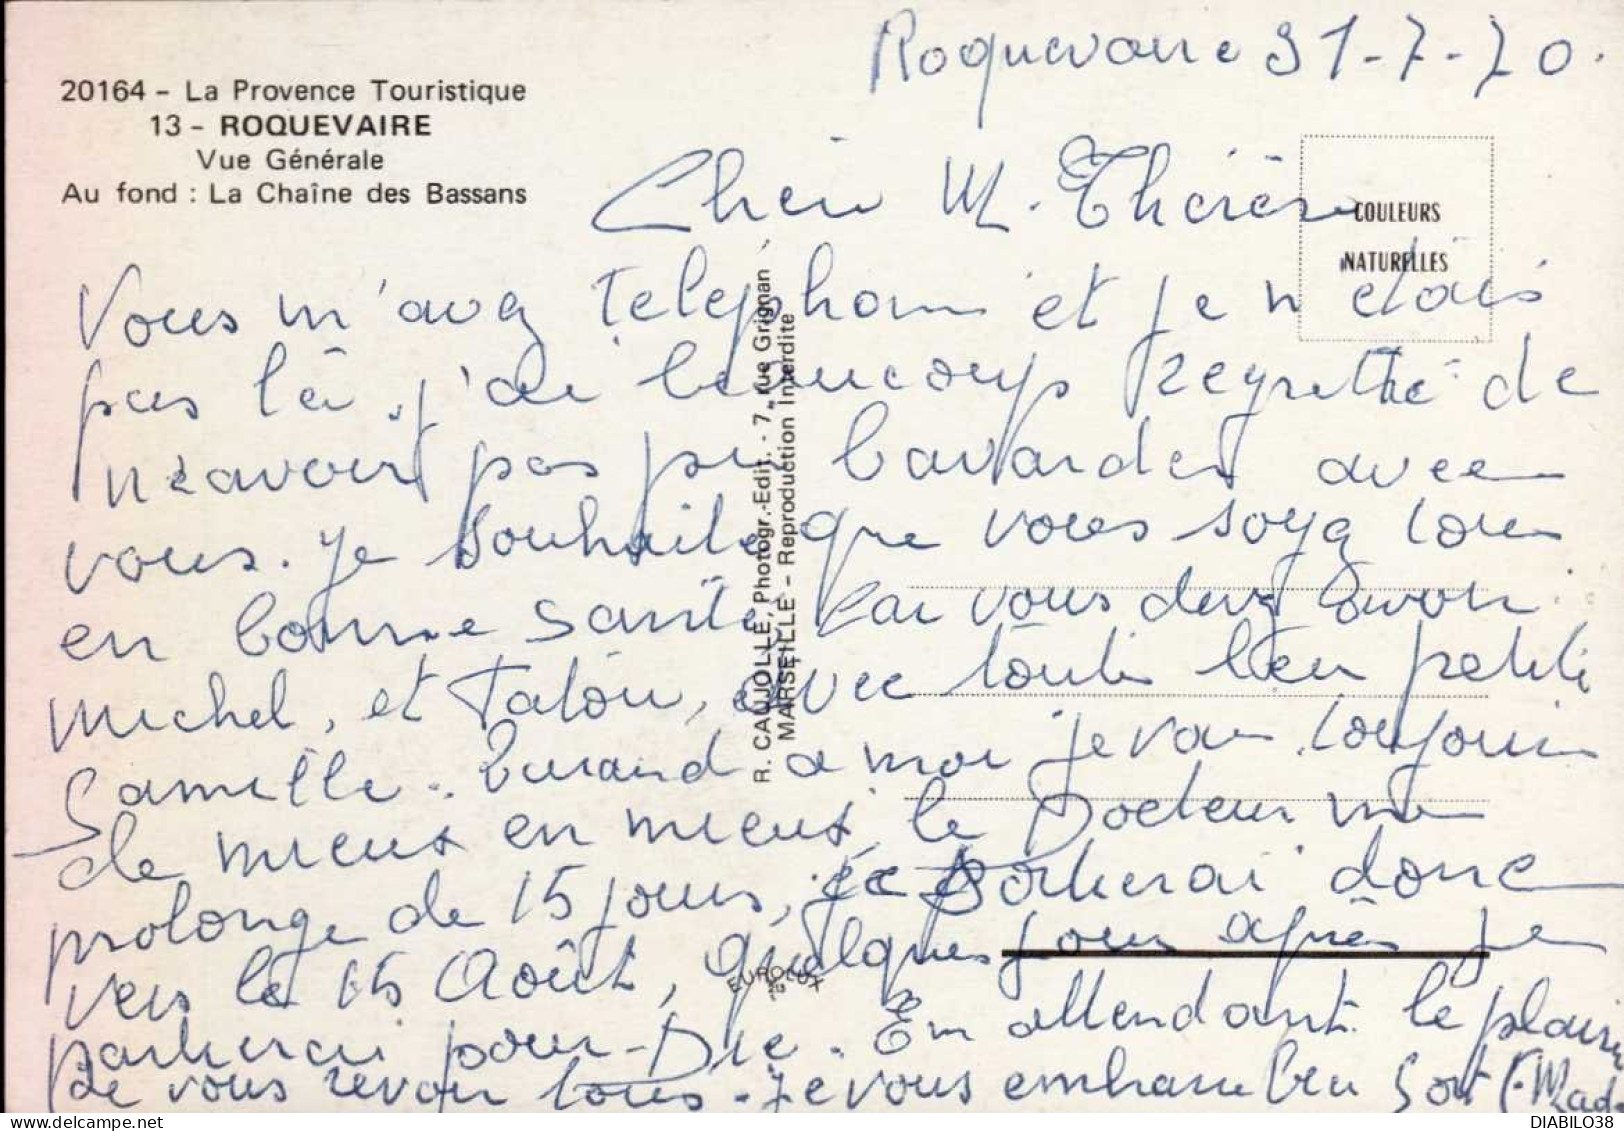 20164 - La Provence Touristique
13 - ROQUEVAIRE
Vue Générale
Au fond : La Chaîne des Bassans
Roquevaire 31-7-70.
COULEURS
NATURELLES
Chère M. Thérèse
Vous m'avez téléphoné et je n'étais
pas là, j'ai beaucoup regretté de
n'avoir pas pu bavarder avec
vous. Je souhaite que vous soyez tous
en bonne santé car vous devez avoir
Michel, et Talou, avec toute leur petite
famille. Quand à moi je vais toujours
de mieux en mieux, le Docteur me
prolonge de 15 jours, je partirai donc
vers le 15 Août, quelques jours après je
partirai pour Die. En attendant le plaisir
de vous revoir tous. Je vous embrasse bien fort
R. CAUJOLLE, Photogr.-Edit. - 7, rue Grignan
MARSEILLE - Reproduction Interdite
EUROLUX
https://www.delcampe.net
DIABILO38